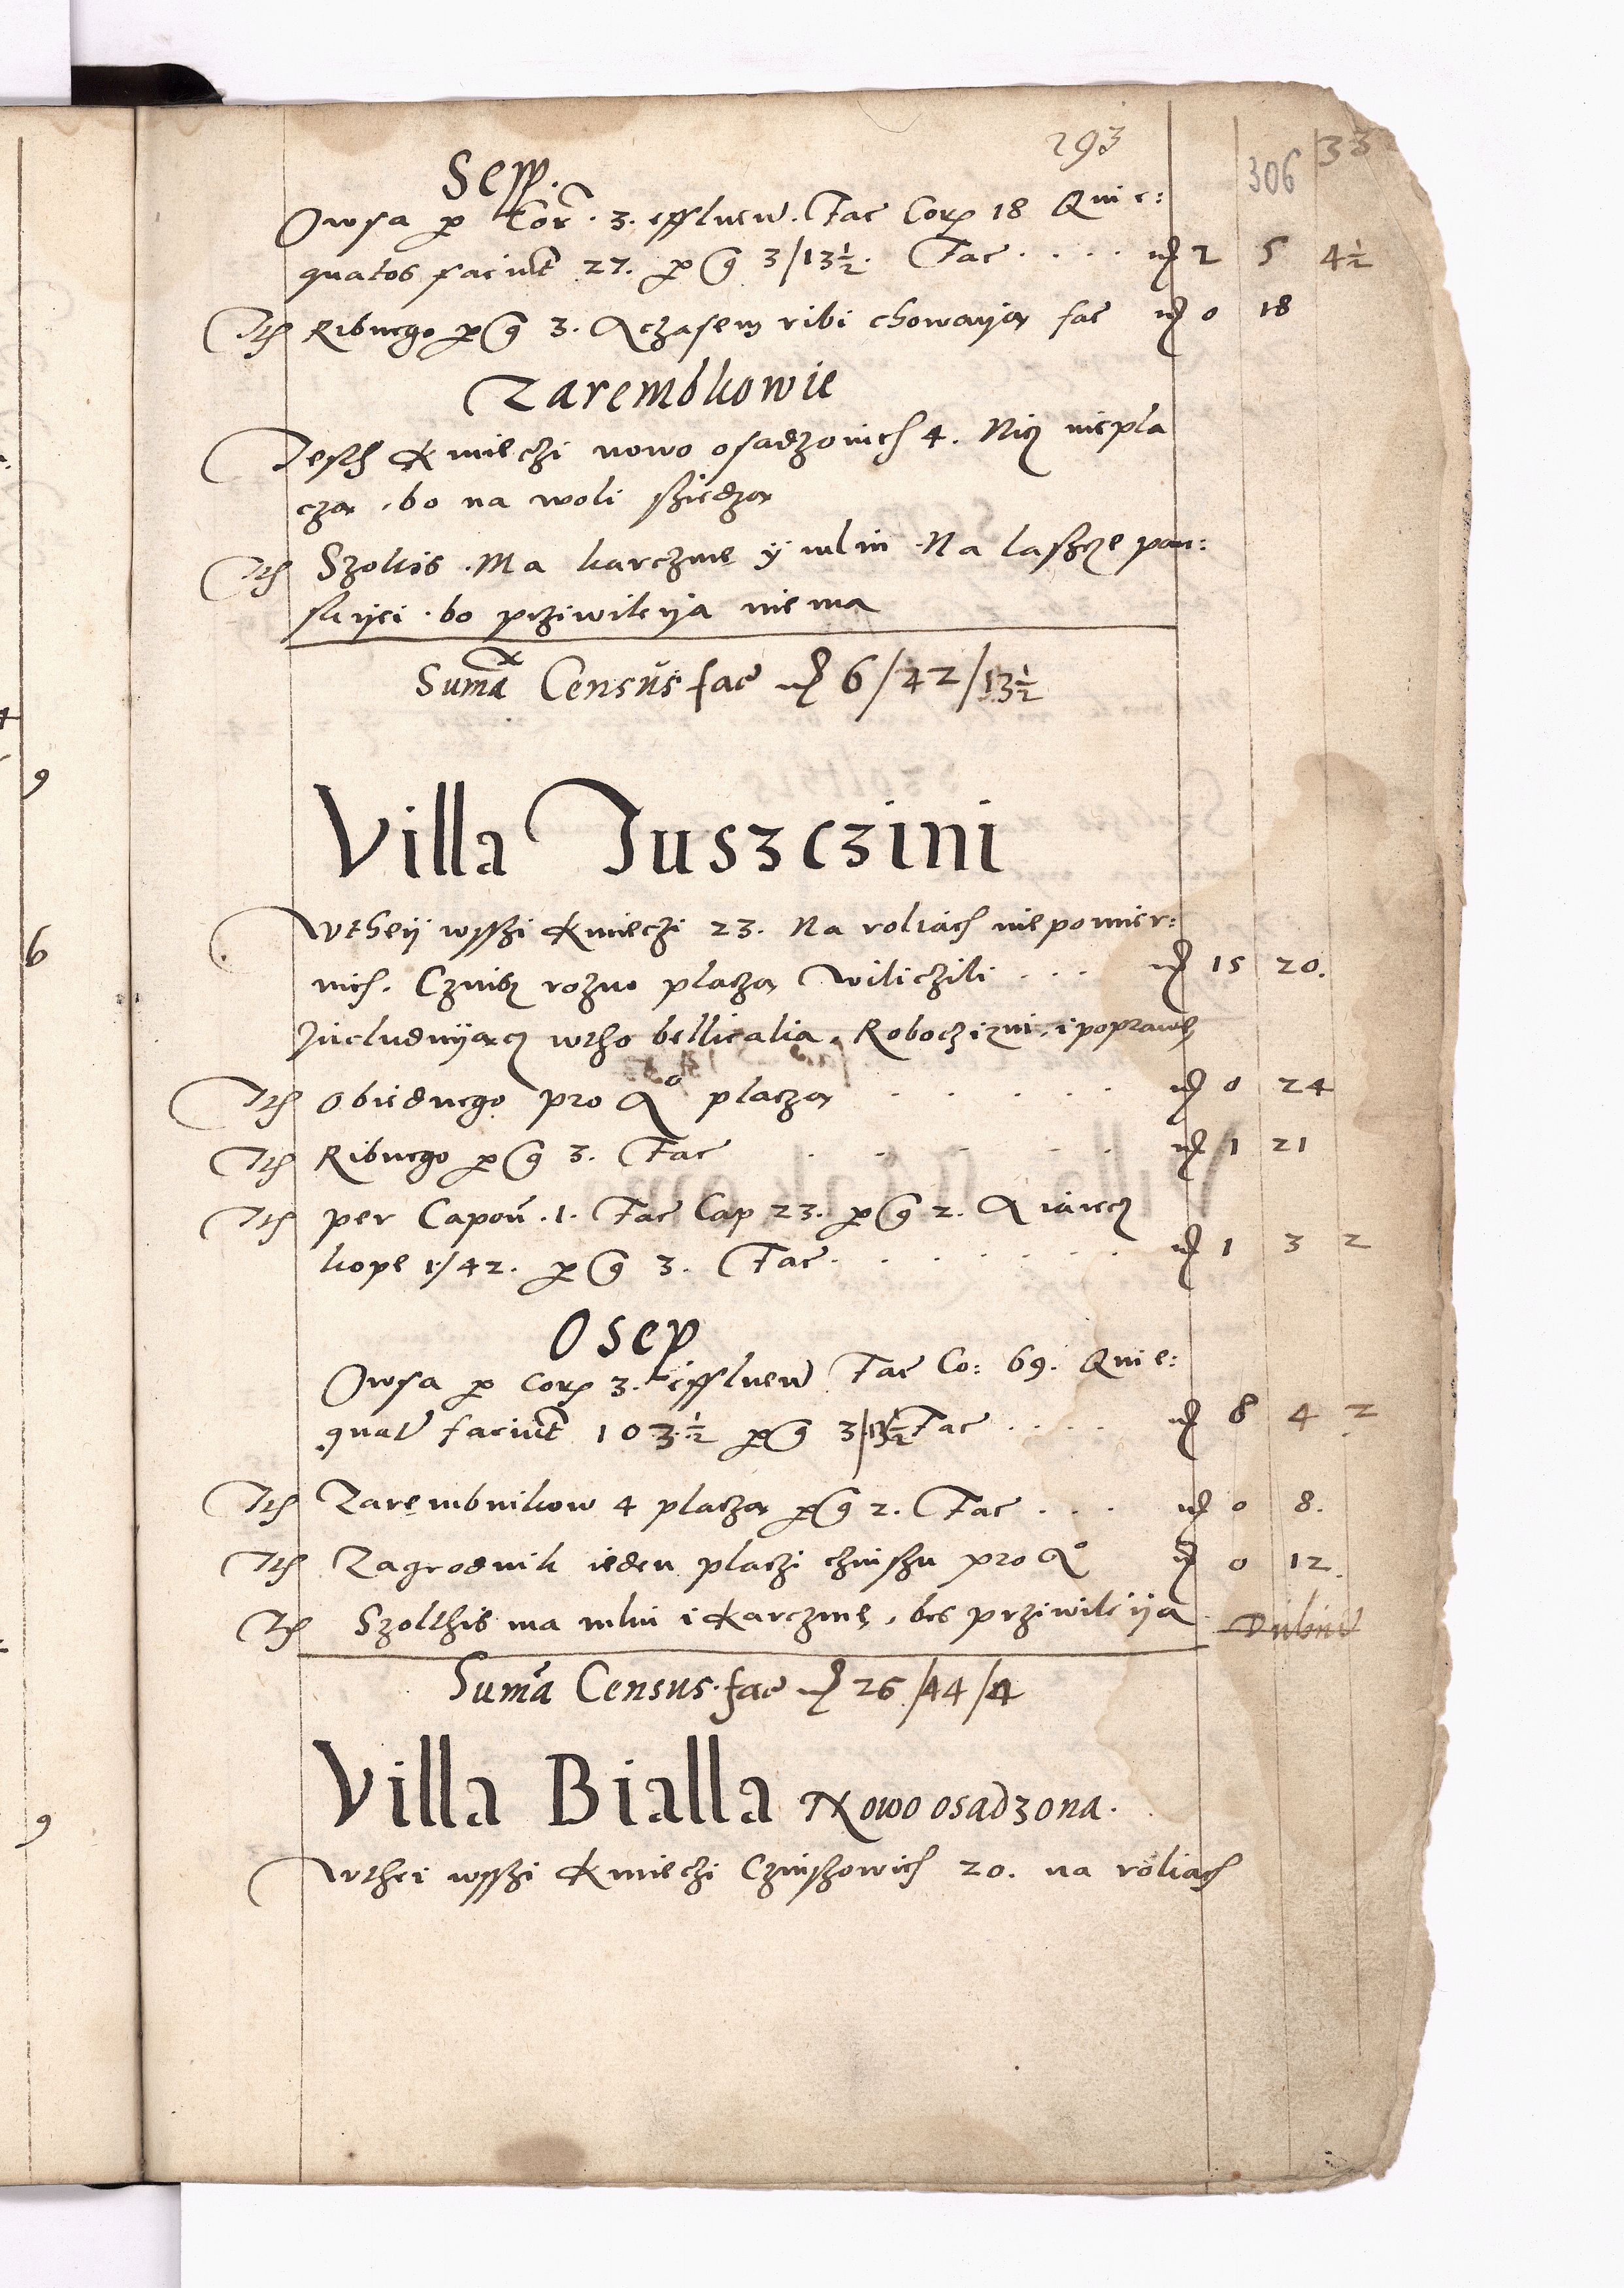 293
306
33
Sepp.
Owsa p Cor. 3. effluen. Fac Corp 18 Quie:
quatos faciut 27. p g 3/13½. Fac . . . . m 2 5 4½
Ith Ribnego p g 3. Aczasem ribi chowayą fac m 0 18
Zarembkowie
Jesth Kmieczi nowo osadzonich 4. Nicz niepla
czą, bo na woli sziedzą
Ith Szoltis. Ma karczmę ÿ mlin. Na laszcze pan:
skÿei. bo prziwileÿa niema
Sumā Census fac m 6/42/13½
Villa Juszczini
Wtheÿ wsszi Kmieczi 23. Na roliach niepomier:
nich. Czinsz rozno placzą Wiliczili . . . m 15 20.
Includuÿącz wtho bellicalia, Roboczizni, i poprawę
Ith Obiednego pro Ao placzą . . . . . m 0 24
Ith Ribnego p g 3. Fac . . . . . m 1 21
Ith per Capon. 1. Fac Cap 23. p g 2. A iaiecz
kope 1/42. p g 3. Fac. . . . . . . m 1 3 2
Osep
Owsa p corp 3. effluen Fac Co: 69. Quie:
quat faciut 103½ p g 3/13½ Fac . . . . m 8 4 2
Ith Zarembnikow 4 placzą p g 2. Fac . . . m 0 8.
Ith Zagrodnik ieden placzi czinszu pro Ao m 0 12.
Ith Szolthis ma mlin i Karczmę, bes prziwileÿa
Sumā Census. fac m 26/44/4
Villa Bialla Nowo osadzona.
Wthei wsszi Kmieczi Czinszowich 20. na roliach